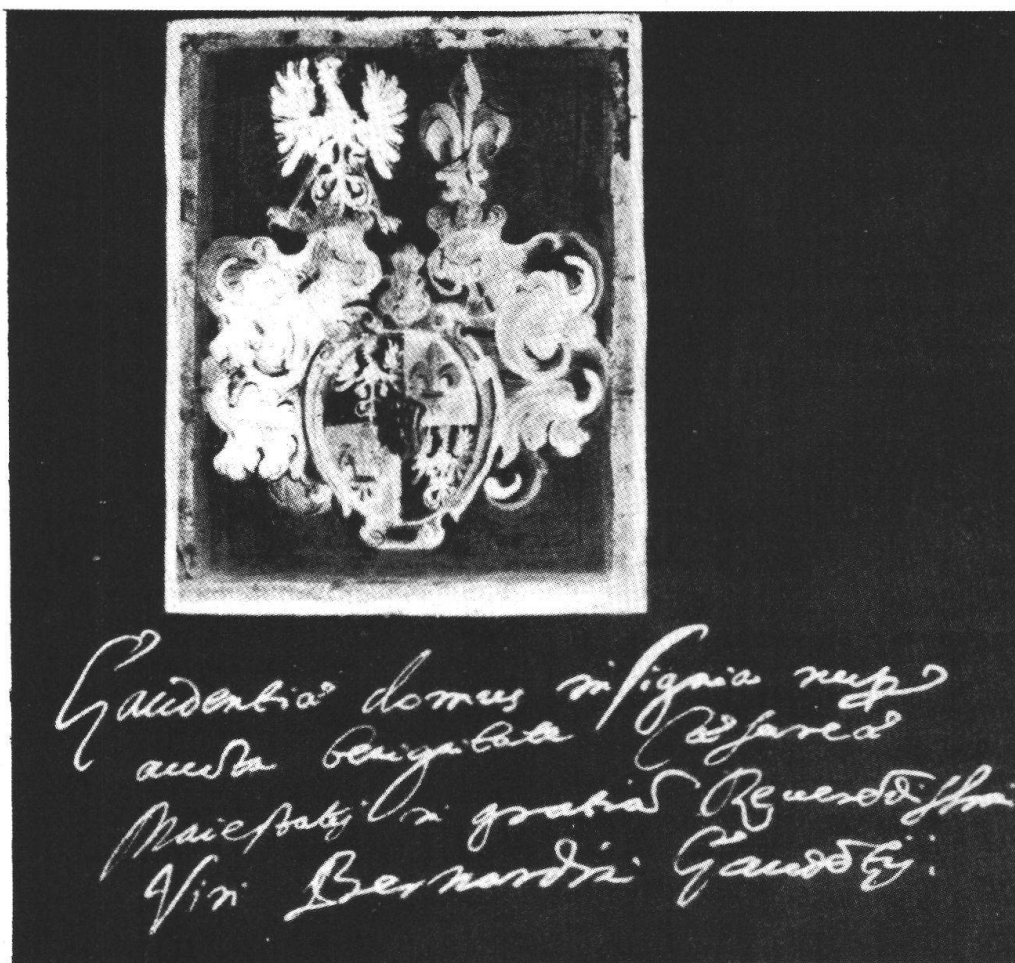 Gaudentiæ domus insignia nup
aucta benignitate Cæsareæ
Maiestatis in gratiā Reuerēdissimi
Viri Bernardin Gaudētij.